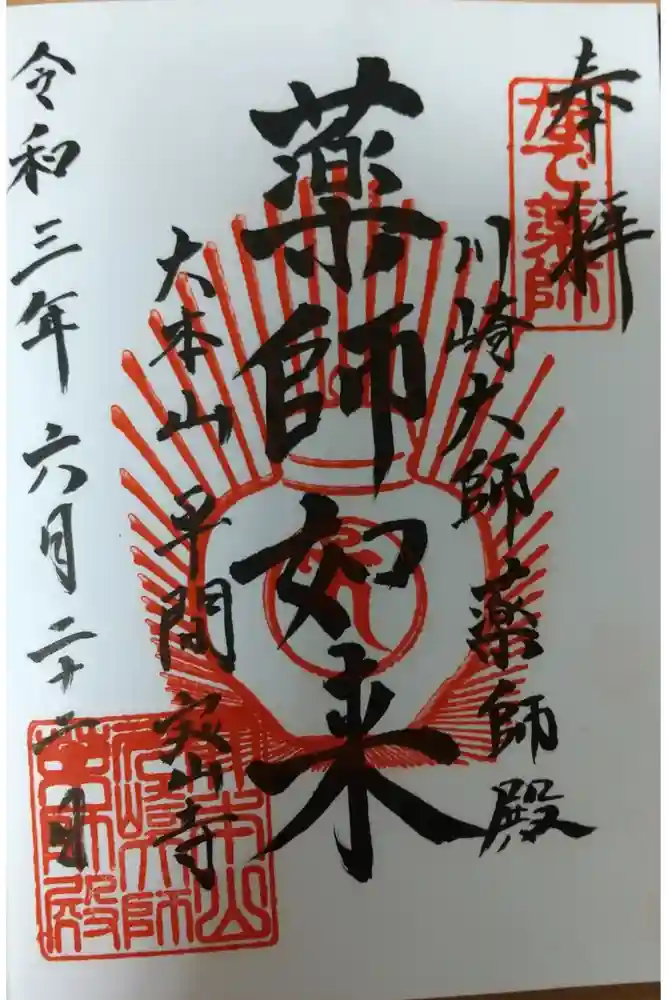 奉拝
なで薬師
川崎大師薬師殿
薬師如来
大本山 平間 寺
令和三年六月二十二日
大本山
川崎大師
薬師殿